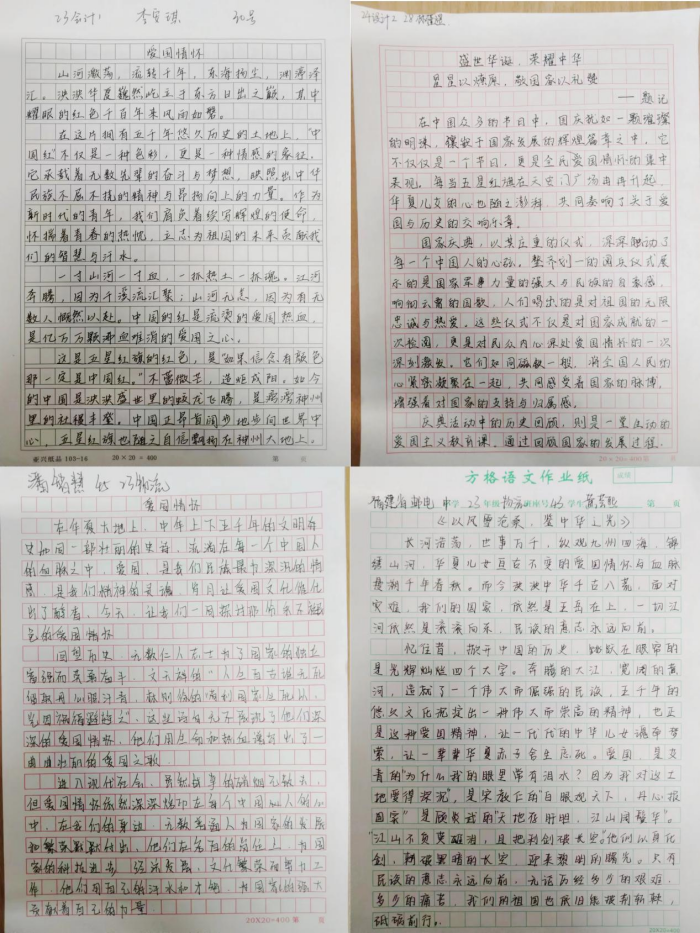 23会计1 30号
爱国情怀
山河激荡，流转千年，东海扬尘，渊潭泽
汇。泱泱华夏巍然屹立于东方日出之巅，其中
耀眼的红色千百年来风雨如磐。
在这片拥有五千年悠久历史的土地上，“中
国红”不仅是一种色彩，更是一种情感的象征。
它承载着无数先辈的奋斗与梦想，映照出中华
民族不屈不挠的精神与昂扬向上的力量。作为
新时代的青年，我们肩负着续写辉煌的使命，
怀揣着青春的热忱，立志为祖国的未来贡献我
们的智慧与汗水。
一寸山河一寸血，一抔热土一抔魂。江河
奔腾，因为千溪流汇聚；山河无恙，因为有无
数人慨然以赴。中国的红是流淌的爱国热血，
是亿万万颗沸血难消的爱国之心。
这是五星红旗的红色，是“如果信念有颜色
那一定是中国红。”不啻微芒，造炬成阳。如今
的中国是泱泱盛世里的蛟龙飞腾，是
里的社稷丰登。中国正昂首阔步地步向世界中
心，五星红旗也随之自信飘扬在神州大地上。
103-16 20×20=400 第 页
盛世华诞，荣耀中华
星星以燎原，敬国家以礼赞
——题记
在中国众多的节日中，国庆犹如一颗璀璨
的明珠，镶嵌于国家发展的辉煌篇章之中。它
不仅仅是一个节日，更是全民爱国情怀的集中
表现。每当五星红旗在天安门广场冉冉升起，
华夏儿女的心也随之澎湃，共同奏响了关于爱
国与历史的交响乐章。
国家庆典，以其庄重的仪式，深深触动了
每一个中国人的心弦。整齐划一的阅兵仪式展
示的是国家军事力量的强大与民族的自豪感，
响彻云霄的国歌，人们唱出的是对祖国的无限
忠诚与热爱。这些仪式不仅是对国家成就的一
次检阅，更是对民众内心深处爱国情怀的一次
深刻激发。它们如同磁铁一般，将全国人民的
心紧紧凝聚在一起，共同感受着国家的脉搏，
增强着对国家的支持与归属感。
庆典活动中的历史回顾，则是一堂生动的
爱国主义教育课，通过回顾国家的发展过程，
20×20=400 第 页
45 23物流
爱国情怀
在华夏大地上，中华上下五千年的文明历
史如同一部壮丽的史诗，流淌在每一个中国人
的血脉之中，爱国，是我们民族最为深沉的情
感，是我们精神的灵魂，岁月让爱国文化
出了醇香，今天，让我们一同探讨那份永不褪
色的爱国情怀
回望历史，无数仁人志士为了国家的独立
富强而英勇奋斗，文天祥的“人生自古谁无死
留取丹心照汗青，林则徐的“苟利国家生死以，
岂因祸福避趋之”，这些诗句无不体现了他们深
深的爱国情怀，他们用生命和热血谱写出了一
曲曲壮丽的爱国之歌
进入现代社会，虽然战争的硝烟已散去，
但爱国情怀依然深深烙印在每个中国人的心
中，在我们的身边，无数普通人为国家的发展
和繁荣默默付出，他们在各自的岗位上，为国
家的科技进步，经济发展，文化繁荣而努力工
作，他们用自己的汗水和才智，为国家的强大
贡献着自己的力量
20X20=400 第 页
方格语文作业纸
福建省邮电中学 23年级物流班座号45学生 第 页
《以风骨
长河浩荡，世事万千，纵观九州四海，锦
绣山河，华夏儿女亘古不变的爱国情怀与血脉
而今泱泱中华千古八荒，面对
灾难，我们的国家，依然是王岳在上，一切江
河依然是滚滚向东，民族的意志永远向前。
忆往昔，掀开中国的历史，跳跃在眼帘的
是光辉灿烂四个大字。奔腾的大江，宽阔的黄
河，造就了一个伟大而倔强的民族，五千年的
悠久文化沉淀出一种伟大而崇高的精神，也正
是这种爱国精神，让一代代的中华儿女魂牵梦
萦，让一辈辈华夏赤子舍生忘死。爱国，是艾
青的“为什么我的眼里常有泪水？因为我对这土
地爱得深沉”。是宋教仁的“白眼观天下，丹心报
国家”是顾炎武的“天地存肝胆，江山阅鬓华”。
“江山不负英雄泪，且把利剑破长空”。他们以身化
剑，刺破黑暗的长空，迎来黎明的曙光。只有
民族的意志永远向前，无论历经多少的艰难，
多少的痛苦，我们的祖国也依旧能披荆斩棘，
砥砺前行。
20X20=400